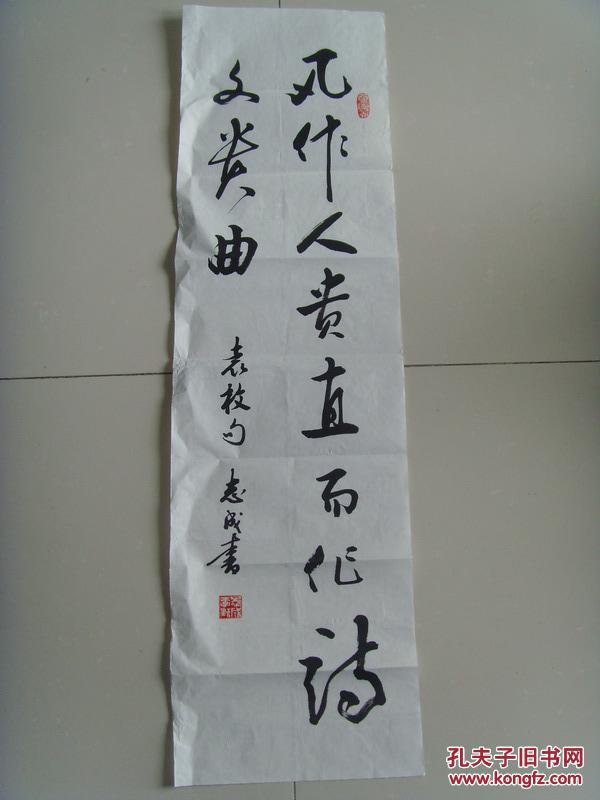 凡作人贵直而作诗
文贵曲
袁枚句 志成书
孔夫子旧书网
www.kongfz.com